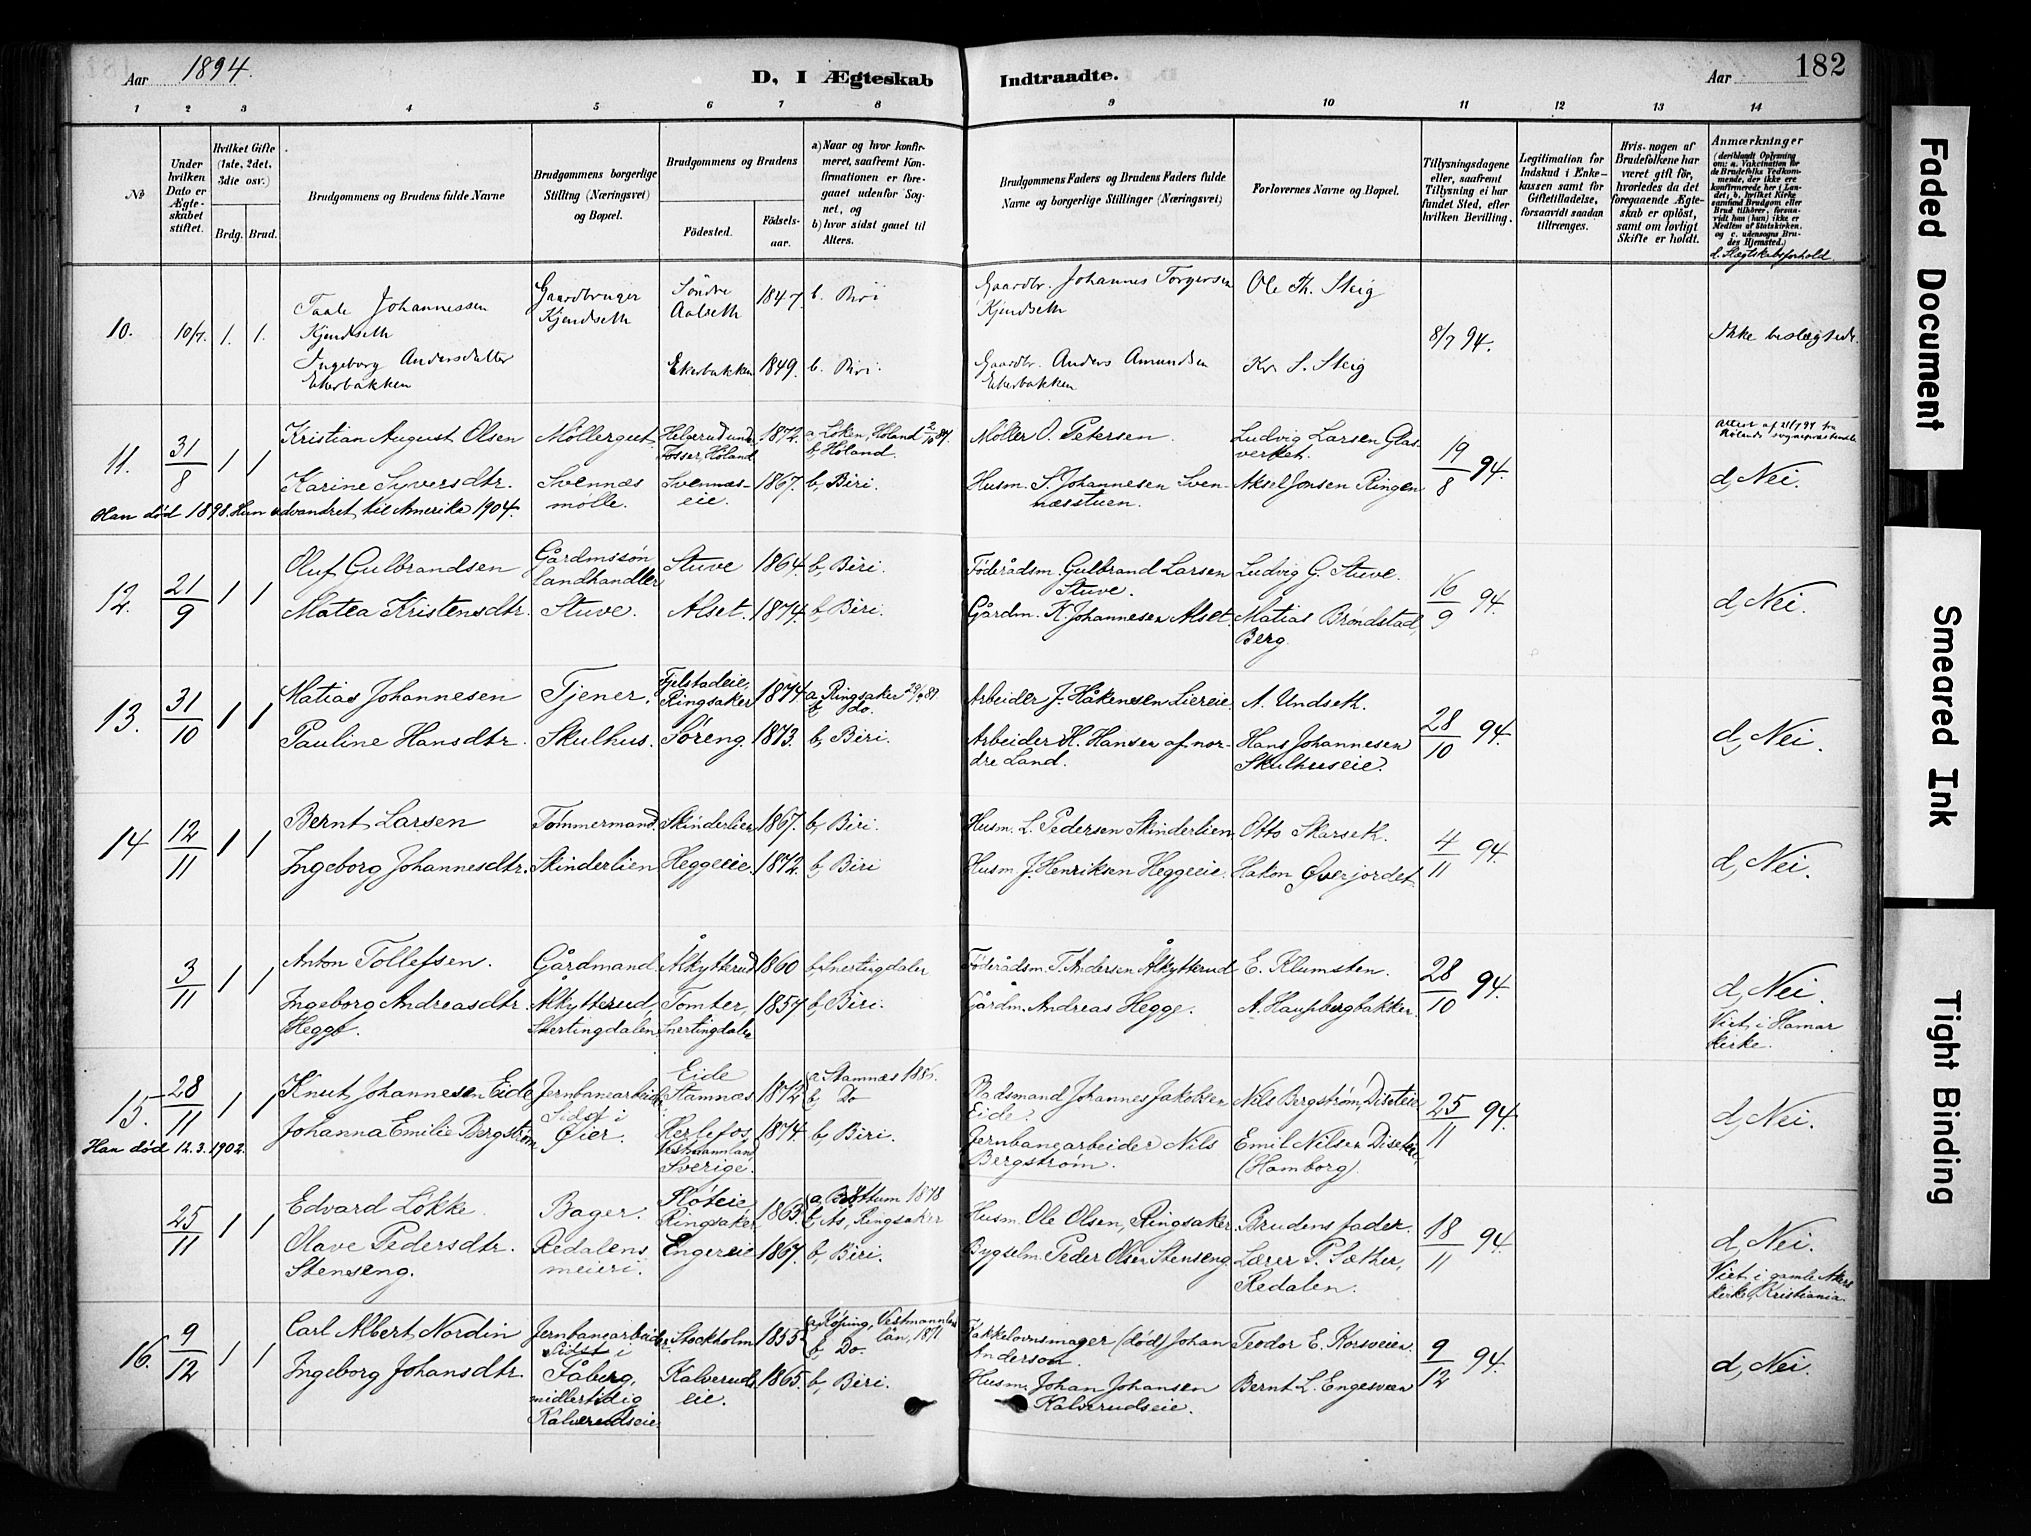 Aar 1894.
D, I Ægteskab Indtraadte.
Aar
182
1 2 3 4 5 6 7 8 9 10 11 12 13 14
No
Under hvilken Dato er Ægteskabet stiftet.
Hvilket Gifte (1ste, 2det, 3die osv.)
Brdg. Brud.
Brudgommens og Brudens fulde Navne
Brudgommens borgerlige Stilling (Næringsvei) og Bopæl.
Brudgommens og Brudens
Födested.
Födselsaar.
a) Naar og hvor konfirmeret, saafremt Konfirmationen er foregaaet udenfor Sognet, og
b) hvor sidst gaaet til Alters.
Brudgommens Faders og Brudens Faders fulde Navne og borgerlige Stillinger (Næringsvei)
Forlovernes Navne og Bopæl.
Tillysningsdagene eller, saafremt Tillysning ei har fundet Sted, efter hvilken Bevilling.
Legitimation for Indskud i Enkekassen samt for Giftetilladelse, forsaavidt saadan tiltrænges.
Hvis nogen af Brudefolkene har været gift før, hvorledes da det foregaaende Ægteskab er oplöst, samt om lovligt Skifte er holdt.
Anmærkninger
(deriblandt Oplysning om: a. Vakcination for de Brudefolks Vedkommende, der ikke ere konfirmerede her i Landet, b. hvilket Kirkesamfund Brudgom eller Brud tilhörer, forsaavidt han (hun) ikke er Medlem af Statskirken, og c. udensogns Brudes Hjemsted.)
d. Slægtskabsforhold.
10. 10/7. 1. 1.
Taale Johannessen Kjendseth
Gaardbruger Kjendseth
Söndre Aalseth
1847. b. Biri
Gaardbr. Johannes Torgersen Kjendseth
Ole Th. Steig
8/7 94.
Ikke beslægtede.
Ingeborg Andersdatter Ekerbakken
Ekerbakken 1849. b. Biri.
Gaardbr. Anders Amundsen Ekerbakken
Kr. S. Steig
11. 31/8 1 1
Kristian August Olsen
Møllergut
Helgerud under Fosser, Høland
1872. a, Løken, Høland 2/10 87. b, Høland.
Møller O. Petersen.
Ludvig Larsen Glasverket.
19/8 94.
Karine Syversdtr.
Svennæs mølle.
Svennæseie.
1867. b, Biri.
Husm. S. Johannesen Svennæsstuen.
Aksel Jonsen Ringen
d, Nei.
Han død 1898. Hun udvandret til Amerika 1904.
12. 21/9 1 1
Oluf Gulbrandsen
Gårdmssøn landhandler Stuve.
Stuve 1864. b, Biri.
Føderådsm. Gulbrand Larsen Stuve.
Ludvig G. Stuve.
16/9 94.
Matea Kristensdtr.
Alset. 1874. b, Biri.
Gårdm. K. Johannesen Alset.
Matias Brøndstad, Berg.
d, Nei.
13. 31/10 1 1
Matias Johannesen
Tjener.
Fjelstadeie, Ringsaker
1874. a, Ringsaker b, do.
Arbeider J. Håkensen Liereie.
A. Undseth.
28/10 94.
Pauline Hansdtr.
Skulhus. Søreng. 1873. b, Biri.
Arbeider H. Hansen af nordre Land.
Hans Johannesen Skulhuseie.
d, Nei.
14 12/11 1 1
Bernt Larsen
Tømmermand. Skinderlien 1867. b, Biri.
Husm. L. Pedersen Skinderlien
Otto Skarseth.
4/11 94.
Ingeborg Johannesdtr.
Skinderlien Heggeeie. 1872. b, Biri
Husm. J. Henriksen Heggeeie.
Håkon Øverjordet
d, Nei.
3/11 1 1
Anton Tollefsen.
Gårdmand. Ålkytterud 1860 b, Snertingdalen
Føderådsm. T. Andersen Ålkytterud
E. Klumsten.
28/10 94.
Ingeborg Andreasdtr. Hegge.
Alkytterud, Snertingdalen
Tomter, Snertingdalen
1857 b, Biri.
Gårdm. Andreas Hegge.
d, Nei.
Viet i Hamar kirke.
15. 28/11 1 1
Knut Johannesen Eide
Jernbanearbeider Sidst i Øier.
Eide Stamnæs
1872 b, Do
Pladsmand Johannes Jakobsen Eide.
Nils Bergstrøm, Diseteie
25/11 94.
Johanna Emilie Bergstrøm
Vestmannland Sverige.
1874. b, Biri.
Jernbanearbeider Nils Bergstrøm.
Emil Nilsen Diseteie, (Hamborg).
d, Nei.
Han død 12.3.1902.
25/11 1 1
Edvard Løkke.
Bager.
Ringsaker
1863. a, Brøttum 1878 b, Ås, Ringsaker
Husm. Ole Olsen, Ringsaker
Brudens fader.
18/11 94.
Olave Pedersdtr. Stenseng.
Redalens meieri.
Engereie 1867. b, Biri.
Bygselm. Peder Olsen Stenseng
Lærer P. Sæther, Redalen.
d, Nei.
Viet i gamle Akers kirke, Kristiania
16. 9/12 1 1
Carl Albert Nordin
Jernbanearbeider sidst i Fåberg, midlertidig Kalverudseie
Stockholm 1855. a, Köping, Vestmannlands län, 1871. b, Do.
Kakkelovnsmager (død) Johan Anderson.
Teodor E. Korsveien.
9/12 94.
Ingeborg Johansdtr.
Kalverudseie. 1865. b, Biri.
Husm. Johan Johansen Kalverudseie.
Bernt L. Engesveen
d, Nei.
Faded Document
Smeared Ink
Tight Binding